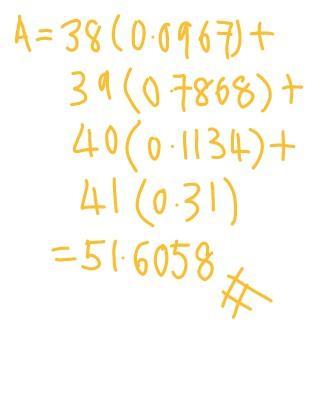 A = 38(0.0967) +
39(0.7868) +
40(0.1134) +
41(0.31)
= 51.6058 #